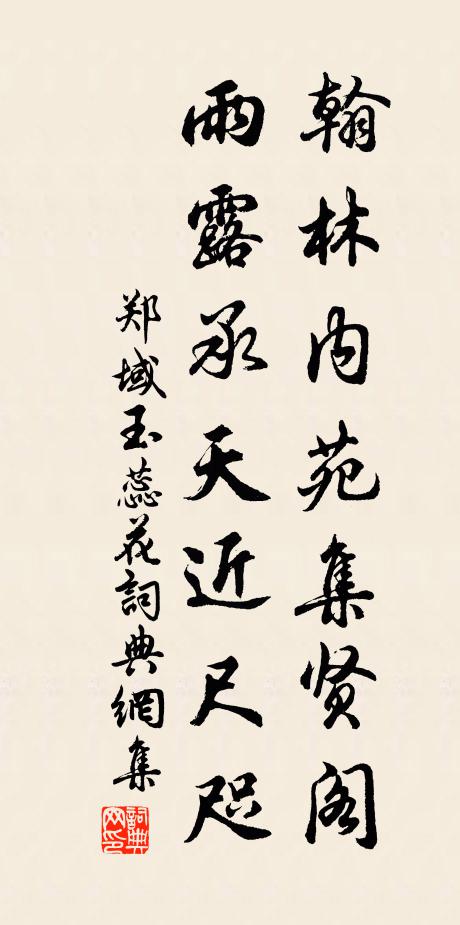 翰林内苑集贤阁
雨露承天近尺咫
郑域玉蕊花詞典網集
詞典網印